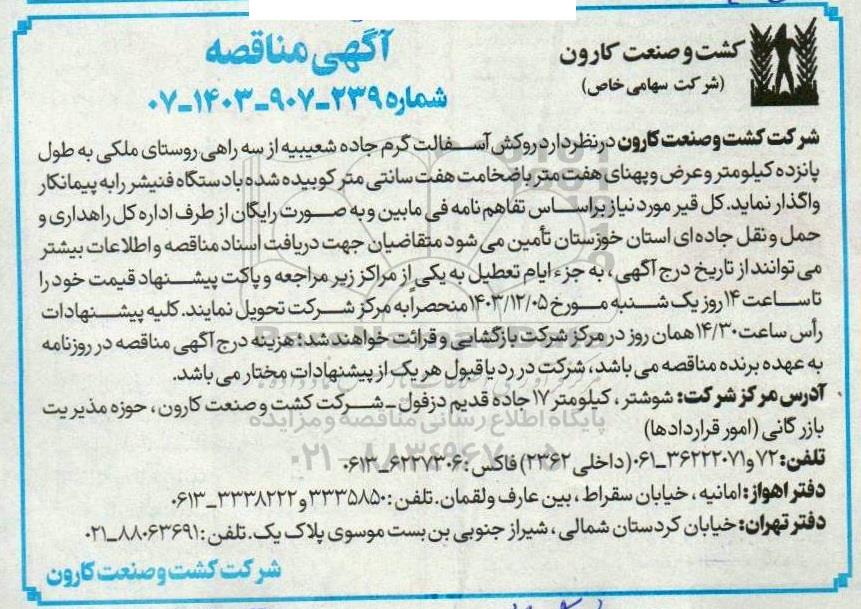 کشت و صنعت کارون
(شرکت سهامی خاص)
آگهی مناقصه
شماره ۲۳۹-۹۰۷-۱۴۰۳-۰۷
شرکت کشت و صنعت کارون درنظر دارد روکش آسفالت گرم جاده شعیبیه از سه راهی روستای ملکی به طول
پانزده کیلومتر و عرض و پهنای هفت متر با ضخامت هفت سانتی متر کوبیده شده با دستگاه فنیشر را به پیمانکار
واگذار نماید. کل قیر مورد نیاز براساس تفاهم نامه فی مابین و به صورت رایگان از طرف اداره کل راهداری و
حمل و نقل جاده ای استان خوزستان تأمین می شود متقاضیان جهت دریافت اسناد مناقصه و اطلاعات بیشتر
می توانند از تاریخ درج آگهی، به جزء ایام تعطیل به یکی از مراکز زیر مراجعه و پاکت پیشنهاد قیمت خود را
تا ساعت ۱۴ روز یک شنبه مورخ ۱۴۰۳/۱۲/۰۵ منحصراً به مرکز شرکت تحویل نمایند. کلیه پیشنهادات
رأس ساعت ۱۴/۳۰ همان روز در مرکز شرکت بازگشایی و قرائت خواهند شد؛ هزینه درج آگهی مناقصه در روزنامه
به عهده برنده مناقصه می باشد، شرکت در رد یا قبول هر یک از پیشنهادات مختار می باشد.
آدرس مرکز شرکت: شوشتر، کیلومتر ۱۷ جاده قدیم دزفول - شرکت کشت و صنعت کارون، حوزه مدیریت
بازرگانی (امور قراردادها)
تلفن: ۷۲ و ۳۶۲۲۲۰۷۱-۰۶۱ (داخلی ۲۳۶۲) فاکس: ۶۲۲۷۳۰۶-۰۶۱۲
دفتر اهواز: امانیه، خیابان سقراط، بین عارف و لقمان. تلفن: ۳۳۳۵۸۵۰ و ۳۳۳۸۲۲۲-۰۶۱۳
دفتر تهران: خیابان کردستان شمالی، شیراز جنوبی بن بست موسوی پلاک یک. تلفن: ۸۸۰۶۳۶۹۱-۰۲۱
شرکت کشت و صنعت کارون
پایگاه اطلاع رسانی مناقصه و مزایده
۰۲۱-۸۸۳۴۹۶۷۰-۵